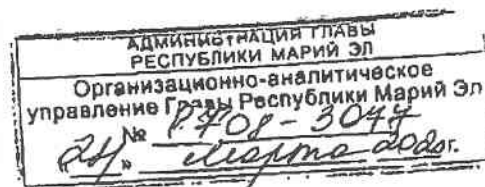 АДМИНИСТРАЦИЯ ГЛАВЫ
РЕСПУБЛИКИ МАРИЙ ЭЛ
Организационно-аналитическое
управление Главы Республики Марий Эл
№ 8708-3047
"24" марта 2020г.